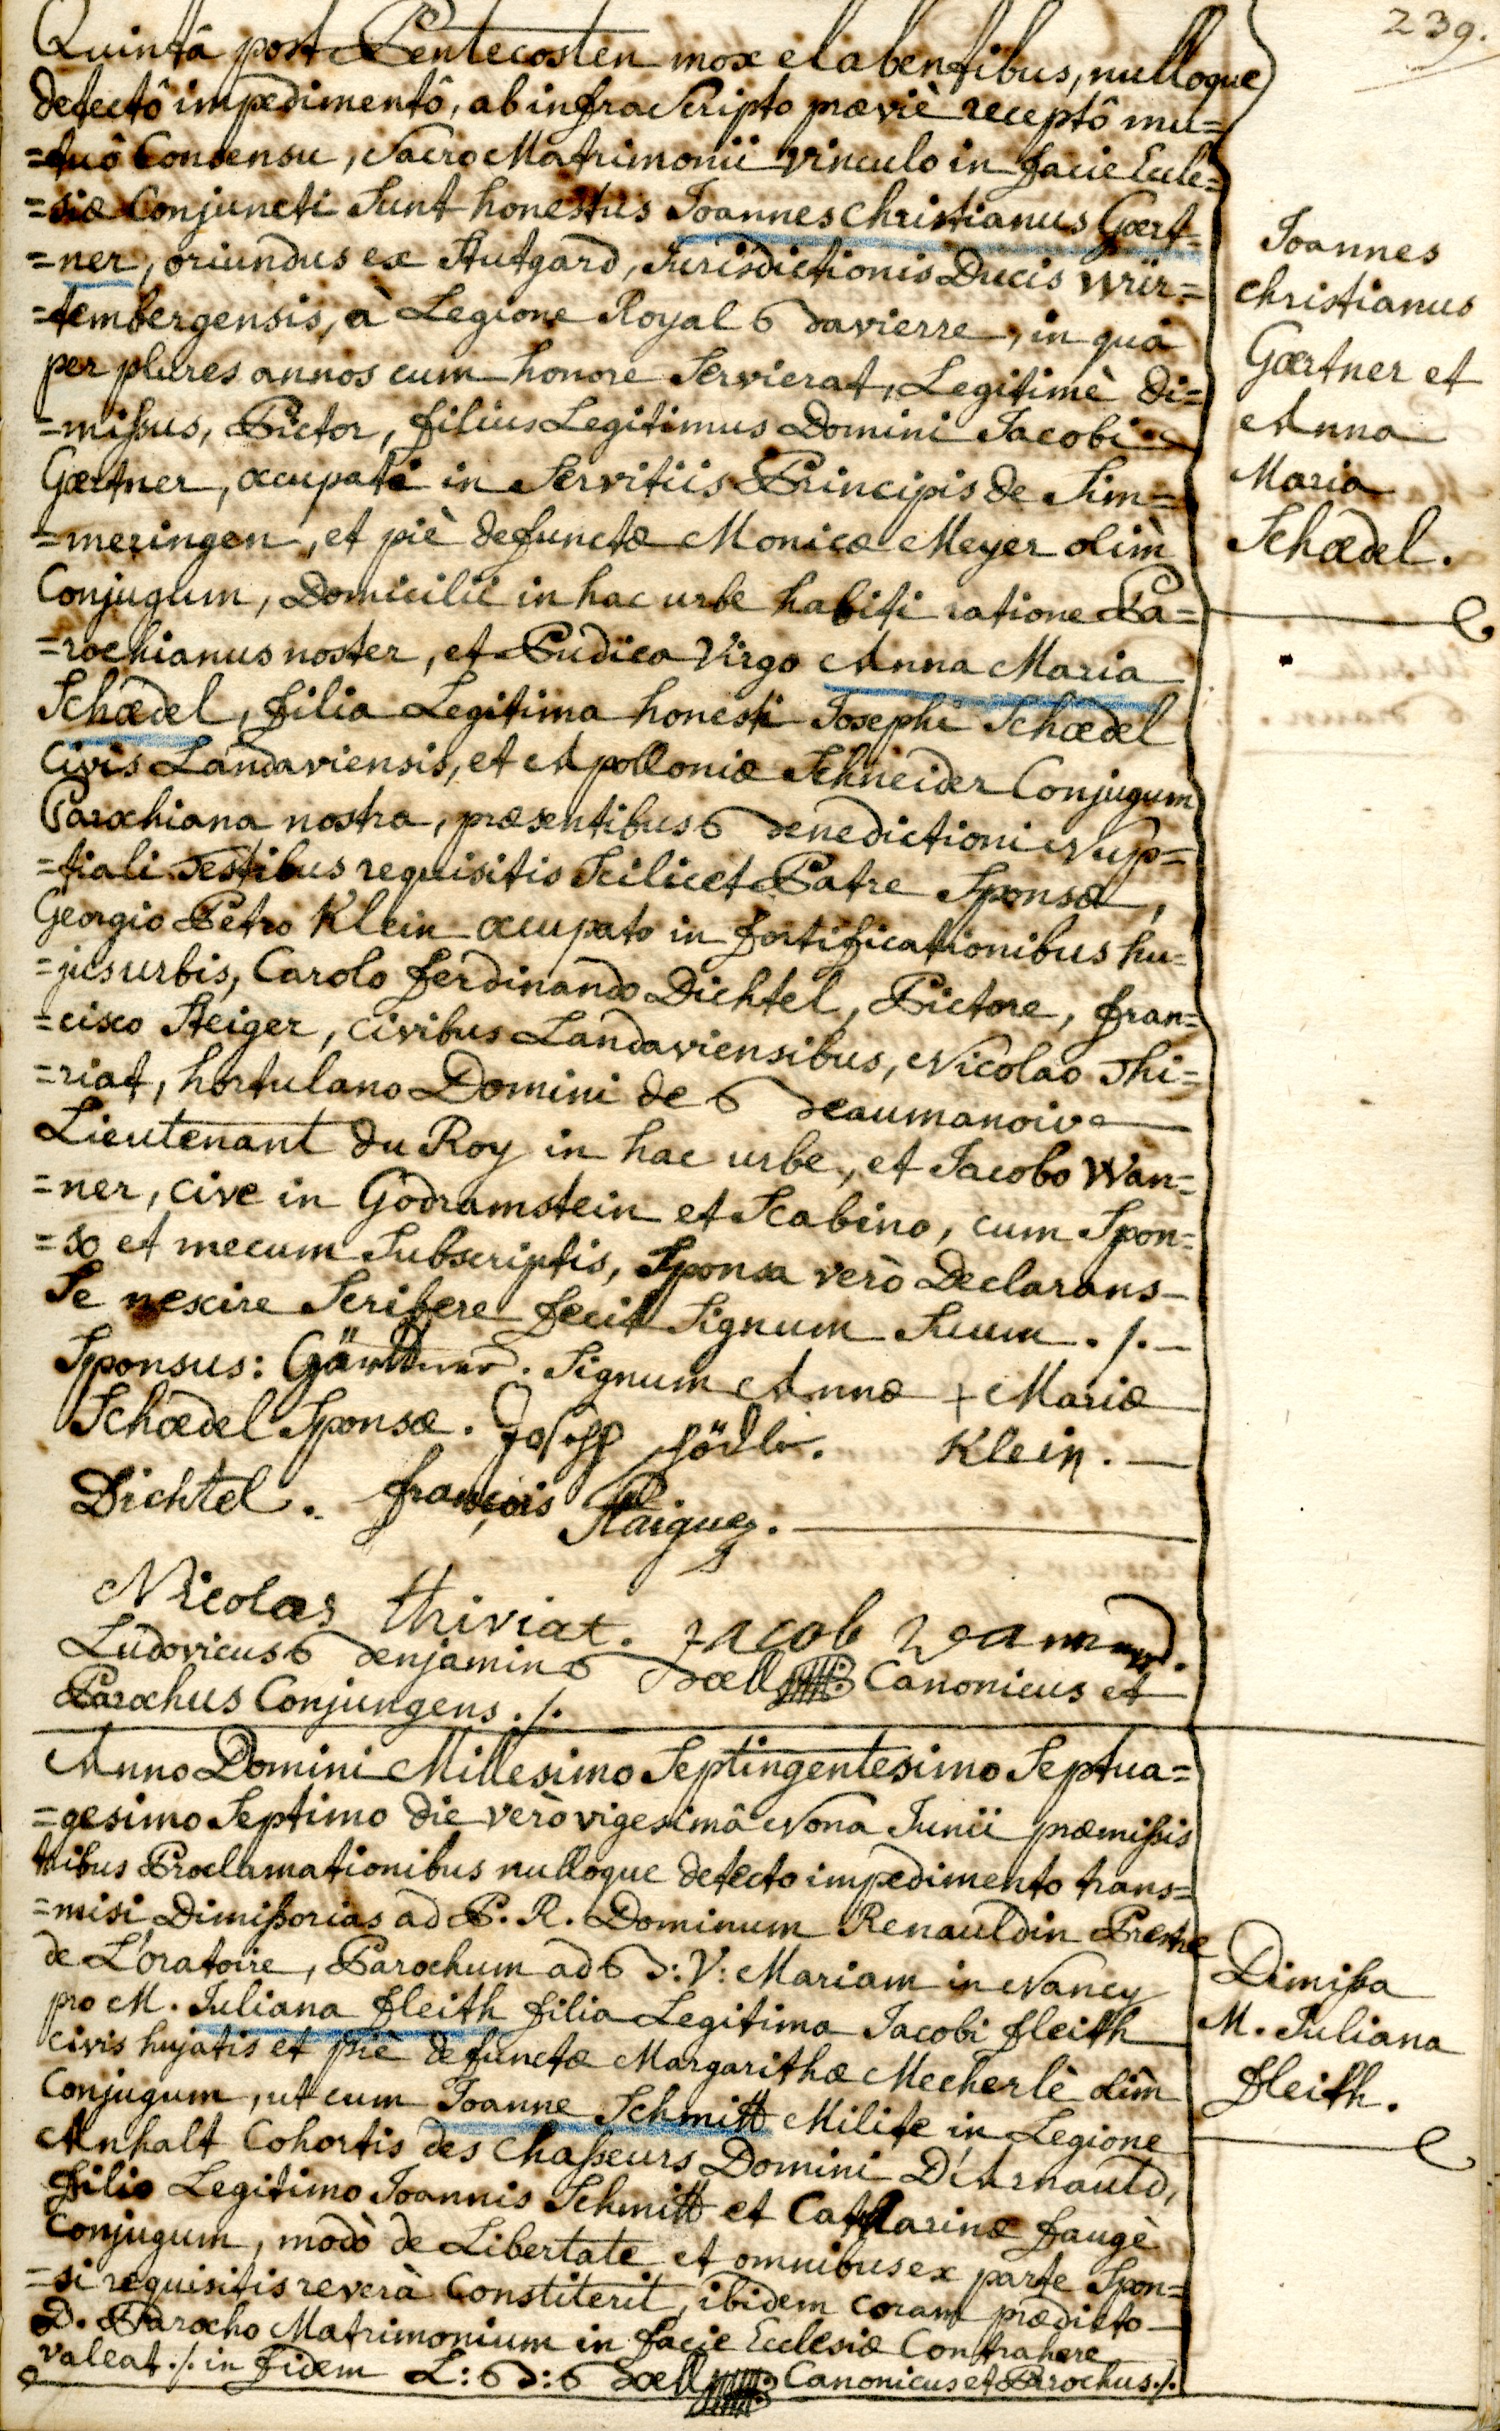 239.
Quintâ post Pentecosten mox elabentibus, nulloque
detectô impedimentô, ab infra Scripto præviè receptô mu=
=tuô Consensu, Sacro Matrimonii vinculo in facie Eccle=
=siæ Conjuncti Sunt honestus Joannes christianus Gært=
=ner, oriundus ex Stutgard, Jurisdictionis Ducis Würr=
=tembergensis, à Legione Royal Bavierre, in quâ
per plures annos cum honore Servierat, Legitimè di=
=missus, Pictor, filius Legitimus Domini Jacobi
Gærtner, occupati in Servitiis Principis de Sim=
=meringen, et piè defunctæ Monicæ Meyer olim
Conjugum, Domicilii in hac urbe habiti ratione Pa=
=rochianus noster, et Pudica Virgo Anna Maria
Schædel, filia Legitima honesti Josephi Schædel
Civis Landaviensis, et Apolloniæ Schneider Conjugum
Parochiana nostra, præsentibus Benedictioni Nup=
=tiali Testibus requisitis Scilicet Patre Sponsæ,
Georgio Petro Klein occupato in fortificationibus hu=
=jus urbis, Carolo ferdinando Dichtel, Pictore, fran=
=cisco Steiger, civibus Landaviensibus, Nicolao Thi=
=riat, hortulano Domini de Beaumanoir
Lieutenant du Roy in hac urbe, et Jacobo Wan=
=ner, cive in Godramstein et Scabino, cum Spon=
=so et mecum Subscriptis, Sponsa verò Declarans
Se nescire Scribere fecit Signum Suum ./.
Sponsus: Gärttner. Signum Annæ + Mariæ
Schædel Sponsæ. Joseph Klein.
Dichtel. françois Staiguer.
Nicolas thiriat. Jacob
Ludovicus Benjamin Boell Canonicus et
Parochus Conjungens ./.
Joannes
christianus
Gærtner et
Anna
Maria
Schædel.
Anno Domini Millesimo Septingentesimo Septua=
=gesimo Septimo die verò vigesimâ Nona Junii præmissis
tribus Proclamationibus nulloque detecto impedimento trans=
=misi Dimissorias ad P. R. Dominum Renauldin Prestre
de L'oratoire, Parochum ad B: V: Mariam in Nancy
pro M. Juliana fleith filia Legitima Jacobi fleith
civis hujatis et piè defunctæ Margarithæ Mecherlè olim
Conjugum, ut cum Joanne Schmitt Milite in Legione
Anhalt Cohortis des chasseurs Domini D'Arnauld,
filio Legitimo Joannis Schmitt et Catharinæ faugè
Conjugum, modò de Libertate et omnibus ex parte Spon=
=si requisitis reverà Constiterit, ibidem coram prædicto
D. Parocho Matrimonium in facie Ecclesiæ Contrahere
valeat ./. in fidem L: B: Boell Canonicus et Parochus ./.
Dimissa
M. Juliana
fleith.